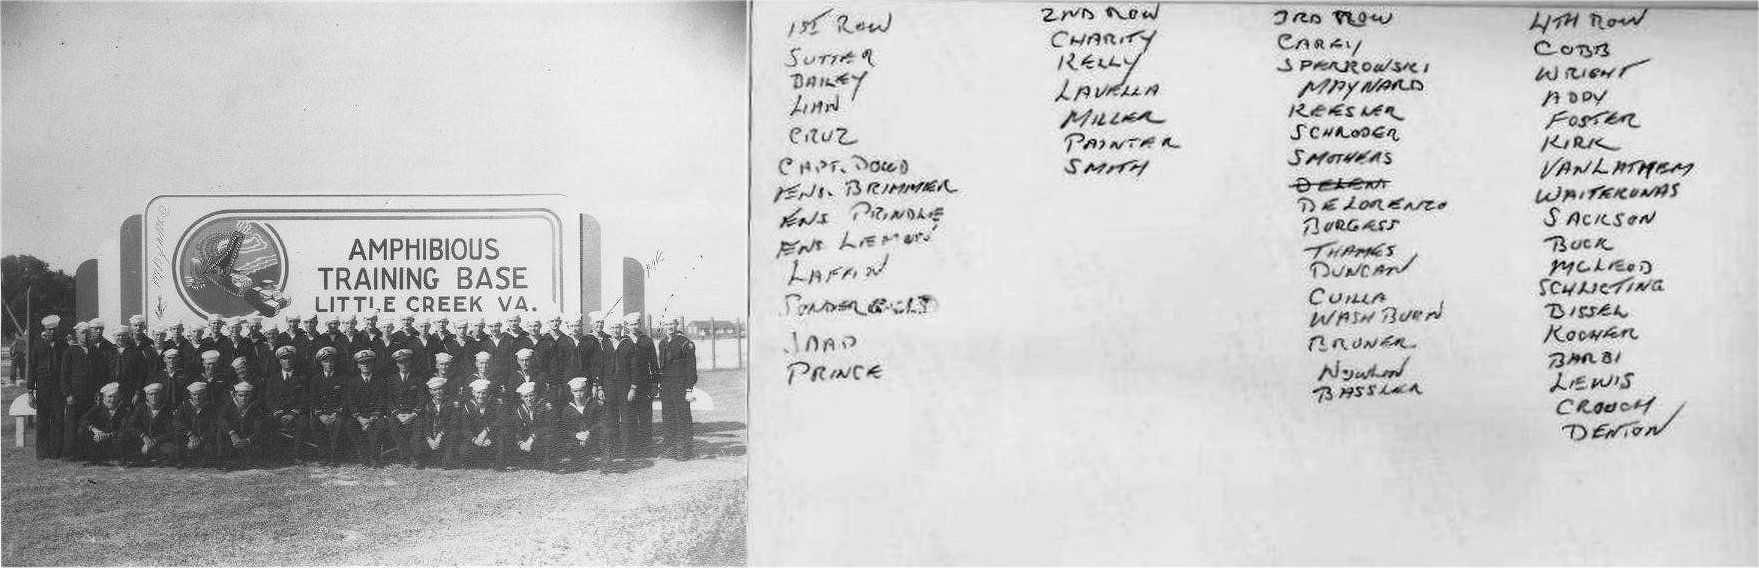 AMPHIBIOUS
TRAINING BASE
LITTLE CREEK VA.
1ST ROW
SUTTER
BAILEY
LIAN
CRUZ
CAPT. DOWD
ENS. BRIMMER
ENS PRINDLE
ENS
LAFFIN
JAAP
PRINCE
2ND ROW
CHARITY
KELLY
LAVELLA
MILLER
PAINTER
SMITH
3RD ROW
CAREY
SPERROWSKI
MAYNARD
KEESLER
SCHRODER
SMOTHERS
DELORENZO
BURGESS
THAMES
DUNCAN
CUILLA
WASHBURN
BRUNER
NOWLIN
BASSLER
4TH ROW
COBB
WRIGHT
ADDY
FOSTER
KIRK
VANLATHEM
WAITEKUNAS
JACKSON
BUCK
MCLEOD
SCHLICTING
BISSEL
KOCHER
BARBI
LEWIS
CROUCH
DENTON